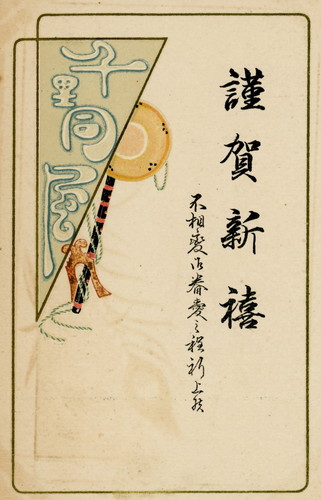 謹賀新禧
不相變御眷愛之程祈上候
千里同風